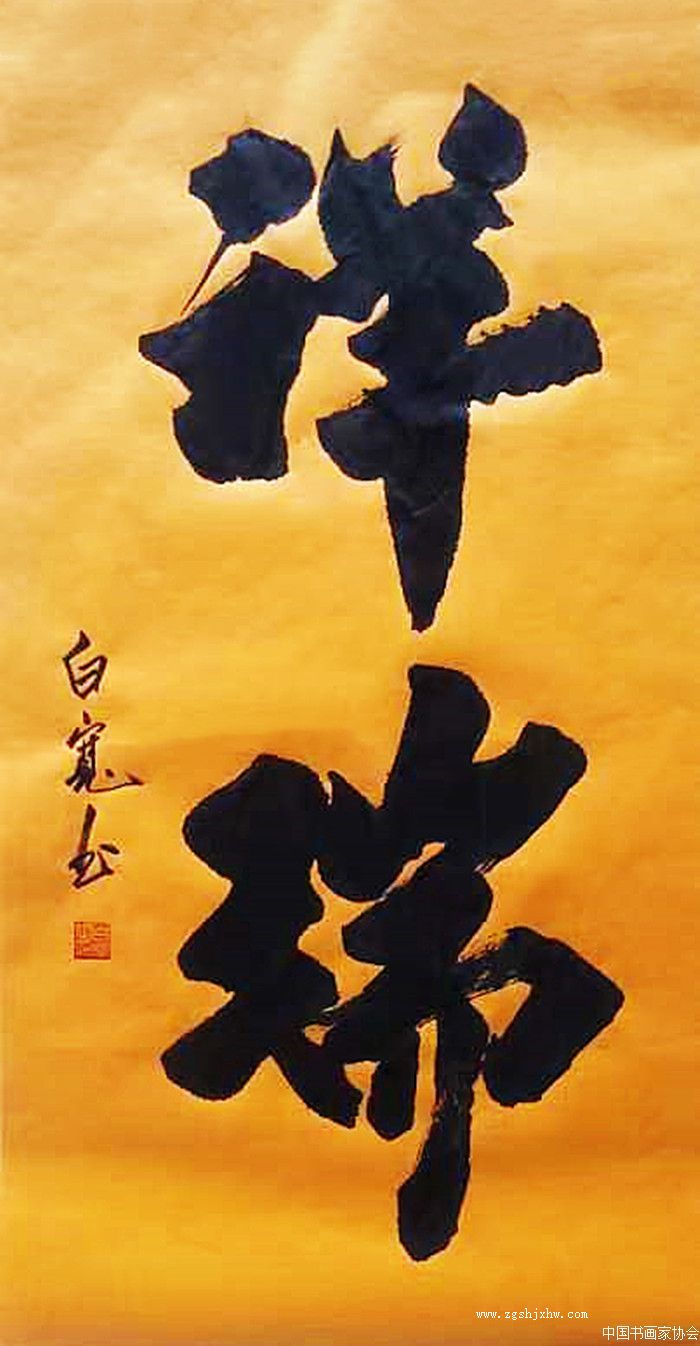 祥瑞
白寬书
www.zgshjxhw.com
中国书画家协会